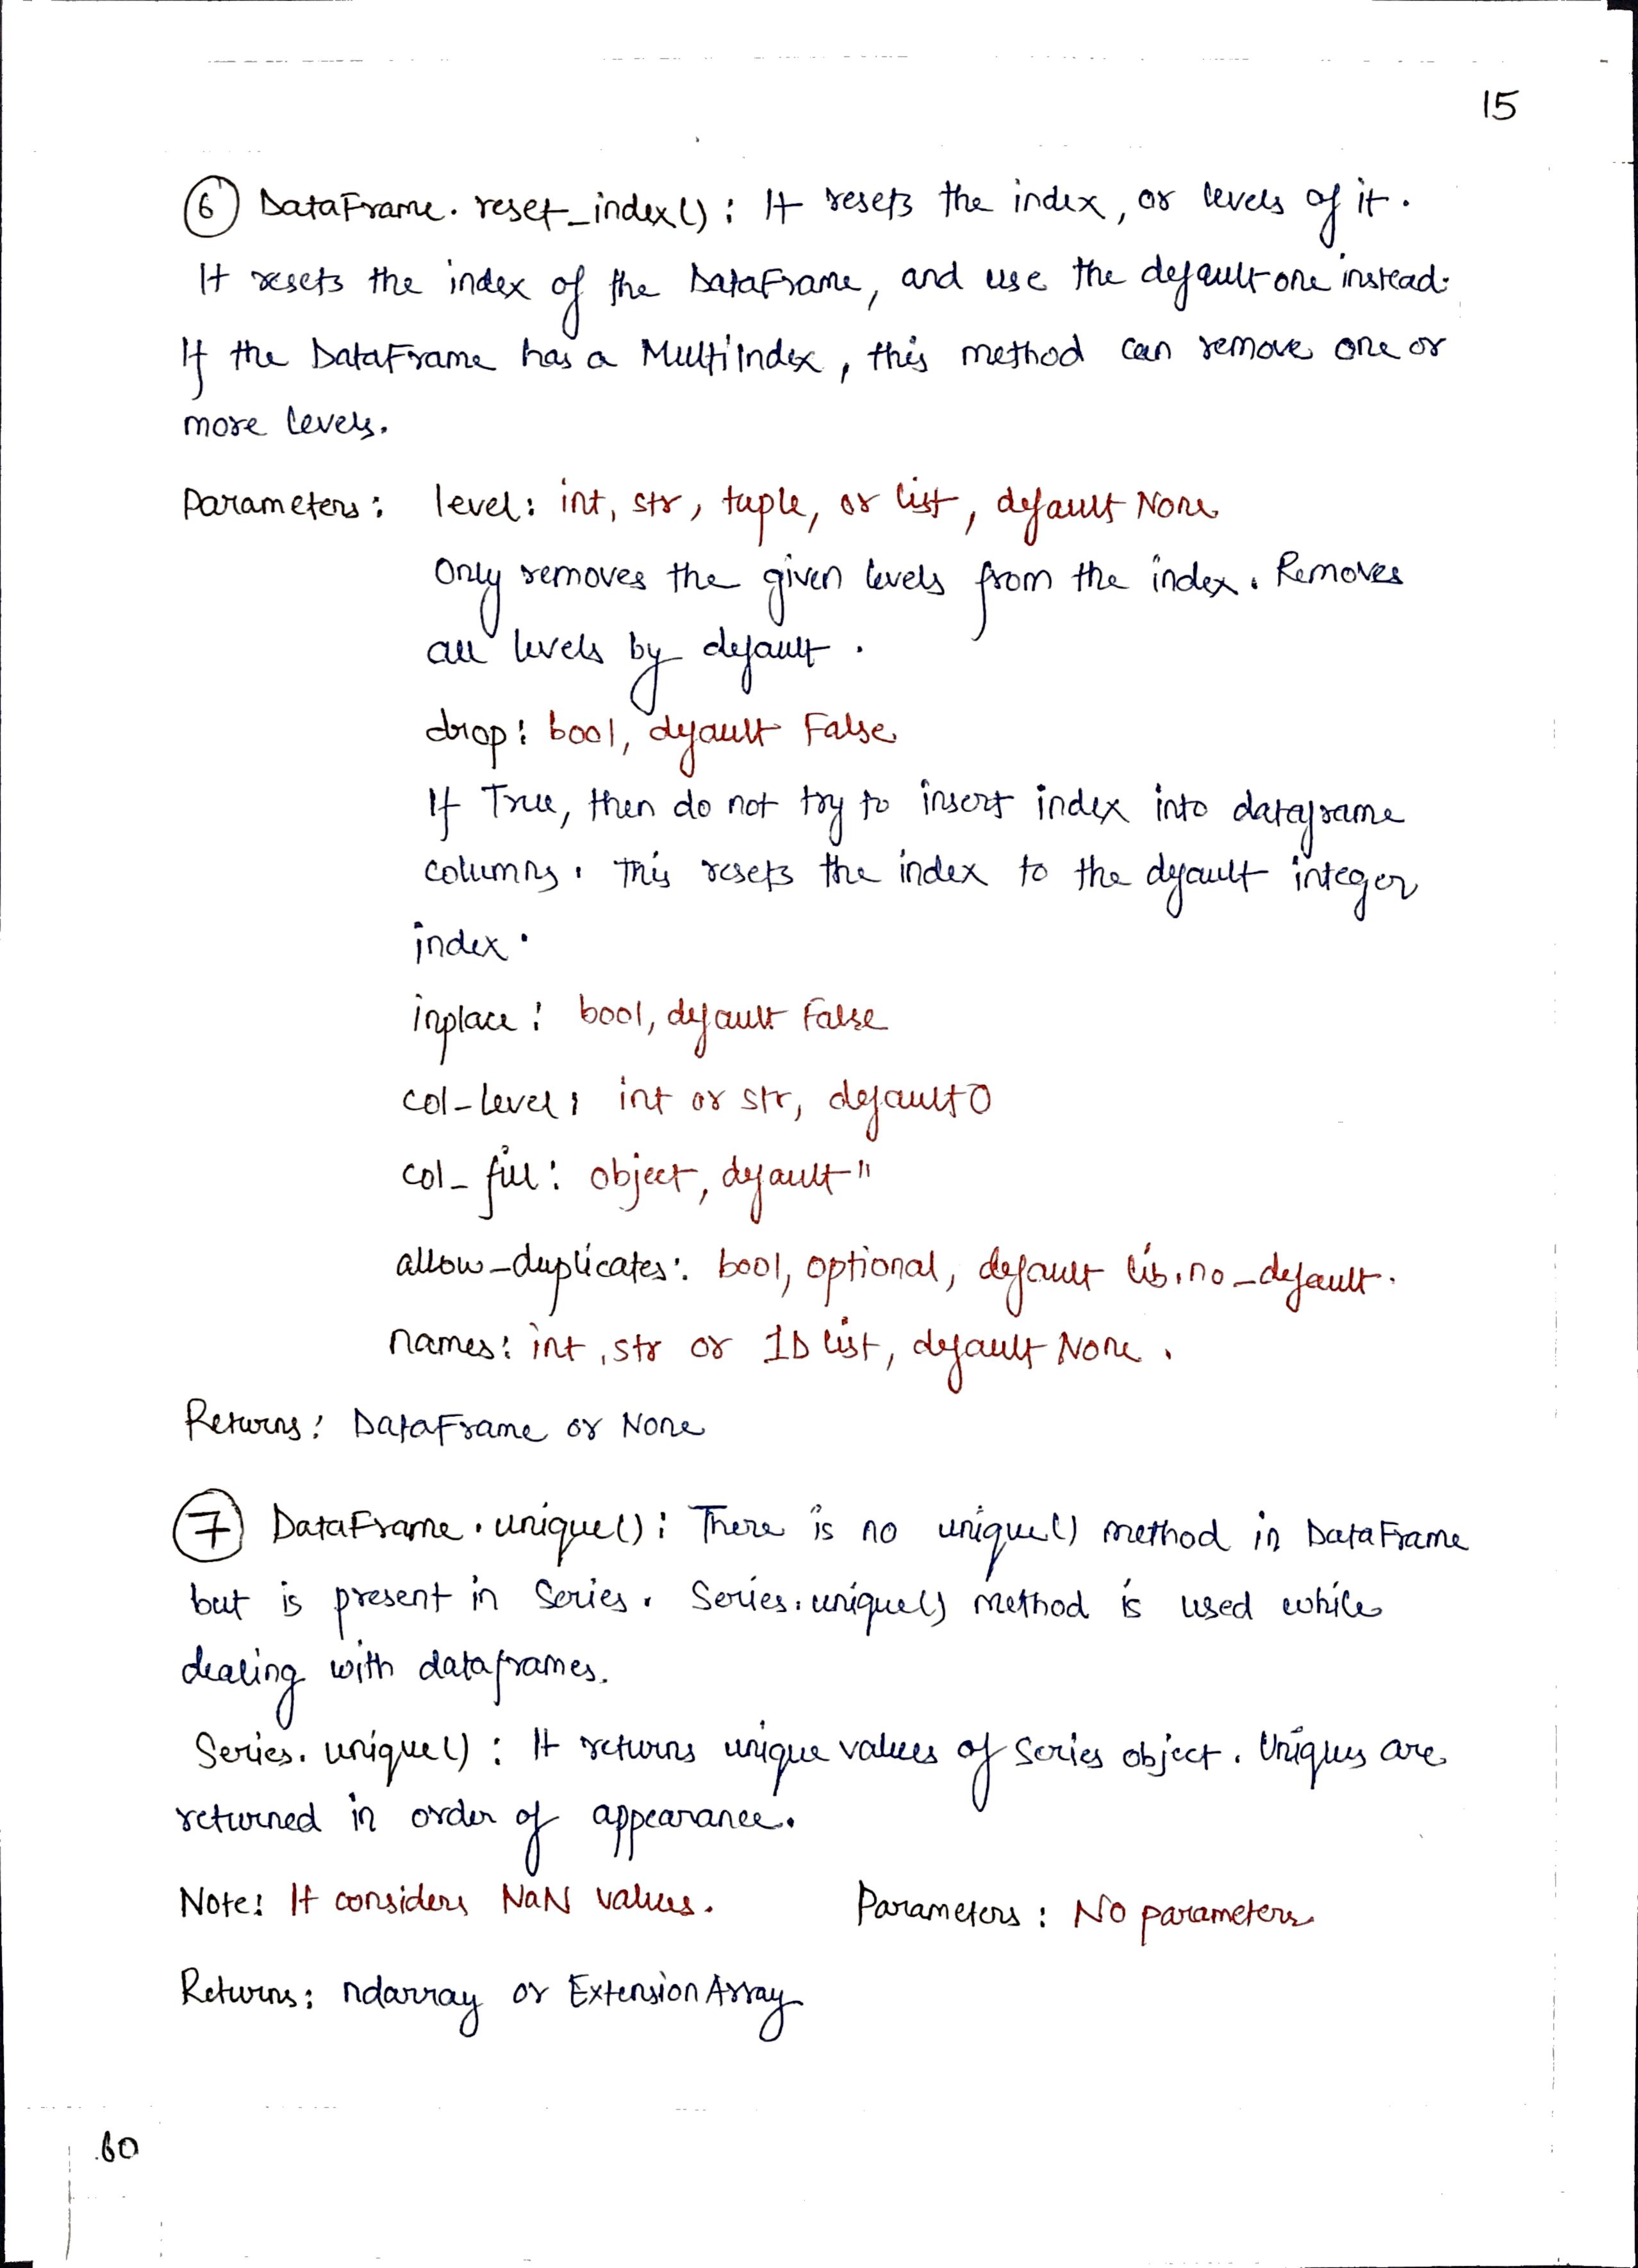 15
⑥ DataFrame.reset_index(): It resets the index, or levels of it.
It resets the index of the DataFrame, and use the default one instead.
If the DataFrame has a MultiIndex, this method can remove one or
more levels.
Parameters: level: int, str, tuple, or list, default None
Only removes the given levels from the index. Removes
all levels by default.
drop: bool, default False
If True, then do not try to insert index into dataframe
columns. This resets the index to the default integer
index.
inplace: bool, default False
col_level: int or str, default 0
col_fill: object, default ''
allow_duplicates: bool, optional, default lib.no_default.
names: int, str or 1D list, default None.
Returns: DataFrame or None
⑦ DataFrame.unique(): There is no unique() method in DataFrame
but is present in Series. Series.unique() method is used while
dealing with dataframes.
Series.unique(): It returns unique values of Series object. Uniques are
returned in order of appearance.
Note: It considers NaN values. Parameters: No parameters
Returns: ndarray or ExtensionArray
60